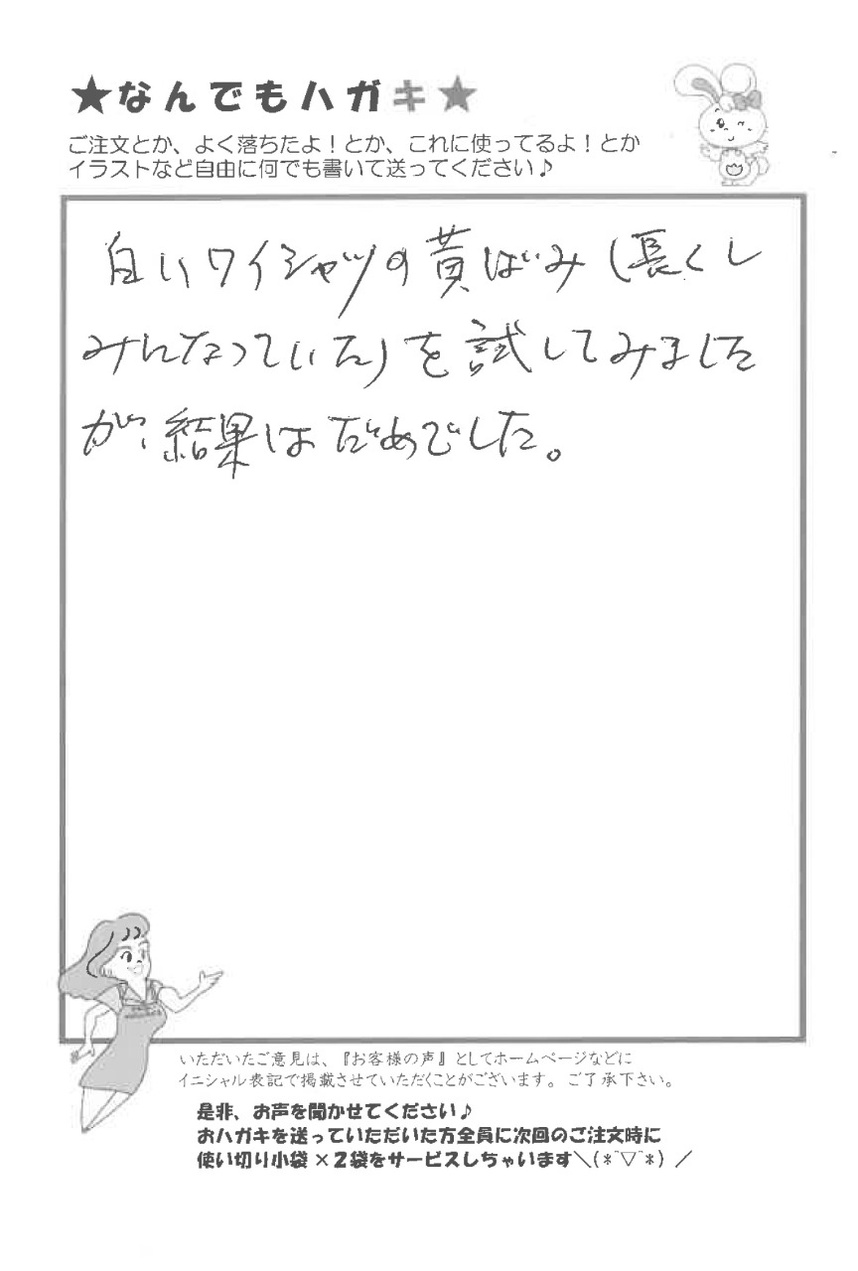 ★なんでもハガキ★
ご注文とか、よく落ちたよ！とか、これに使ってるよ！とか
イラストなど自由に何でも書いて送ってください♪
白いワイシャツの黄ばみ（長くし
みんなっていた）を試してみました
が、結果はだめでした。
いただいたご意見は、『お客様の声』としてホームページなどに
イニシャル表記で掲載させていただくことがございます。ご了承下さい。
是非、お声を聞かせてください♪
おハガキを送っていただいた方全員に次回のご注文時に
使い切り小袋×2袋をサービスしちゃいます＼(*¨▽¨*)／